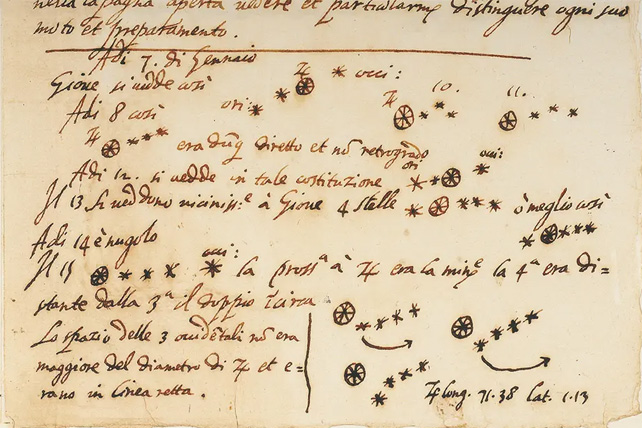 nella pagina aperta vedere et particularmᵉ distinguere ogni suo
moto et preparamento.
Adi 7. di Gennaio
Giove si vedde così ori: occi:
Adi 8 così ♃ 10. 11.
♃ era dūq diretto et nō retrogrado
Adi 12. si vedde in tale costituzione ori: occi:
Il 13 si veddono vicinissᵉ à Giove 4 stelle ò meglio così
Adi 14 è nugolo
Il 15 occi: la prossᵃ à ♃ era la minᵉ la 4ᵃ era di=
stante dalla 3ᵃ il doppio īcirca
Lo spazio delle 3 occidētali nō era
maggiore del diametro di ♃ et e=
rano in linea retta.
♃ long. 71.38 lat. 1.13